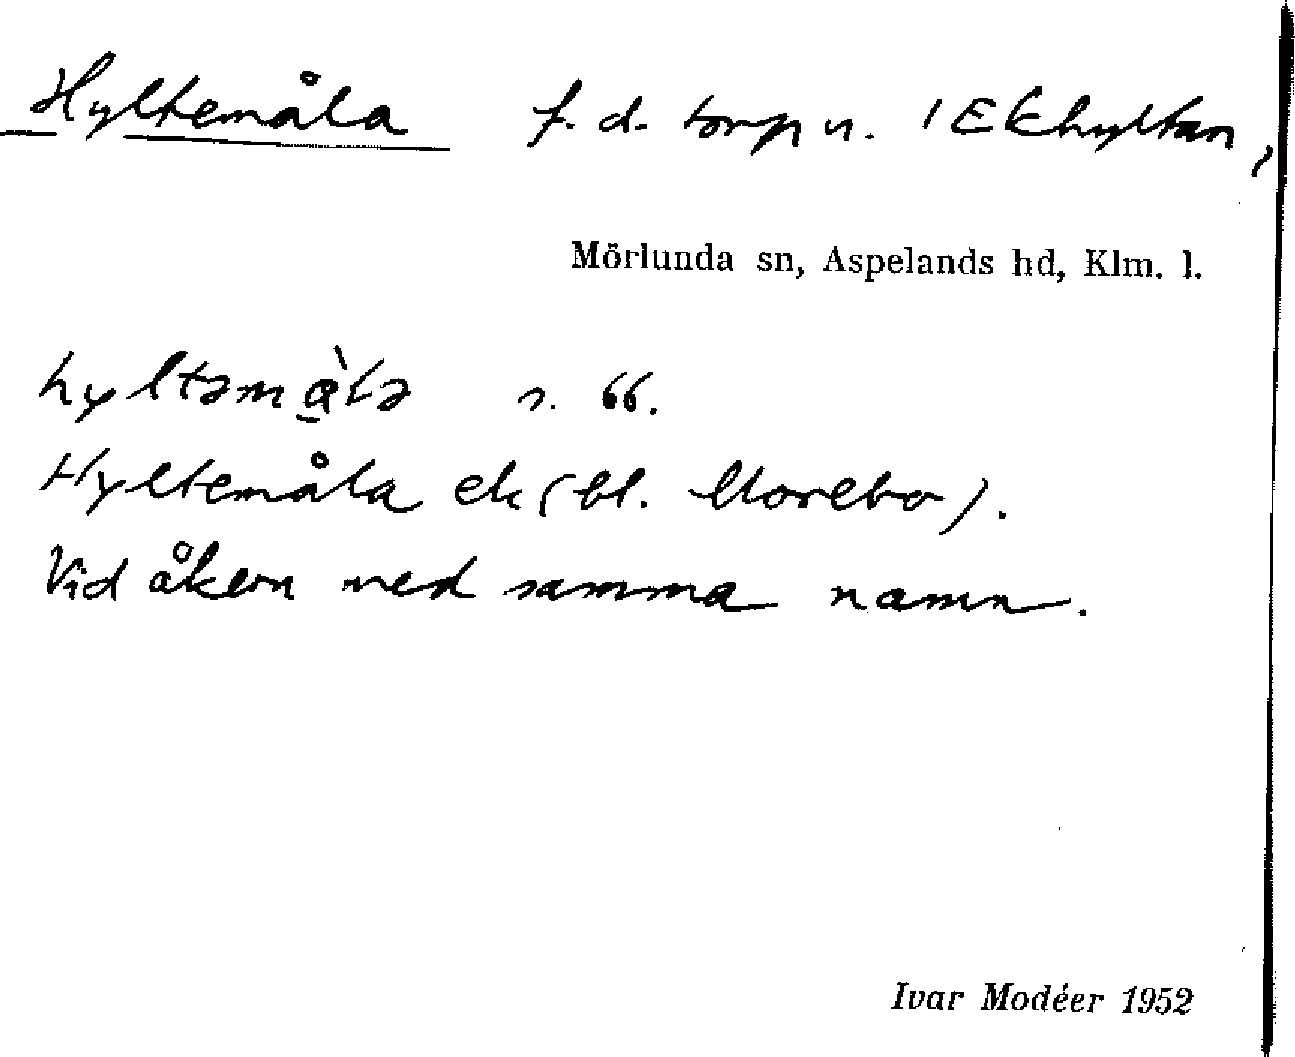 Hyltemåla f.d. torp u. Ekhyltan,
Mörlunda sn, Aspelands hd, Klm. l.
s. 66.
Hyltemåla ek (bl. Morebo).
Vid åkern med samma namn.
Ivar Modéer 1952